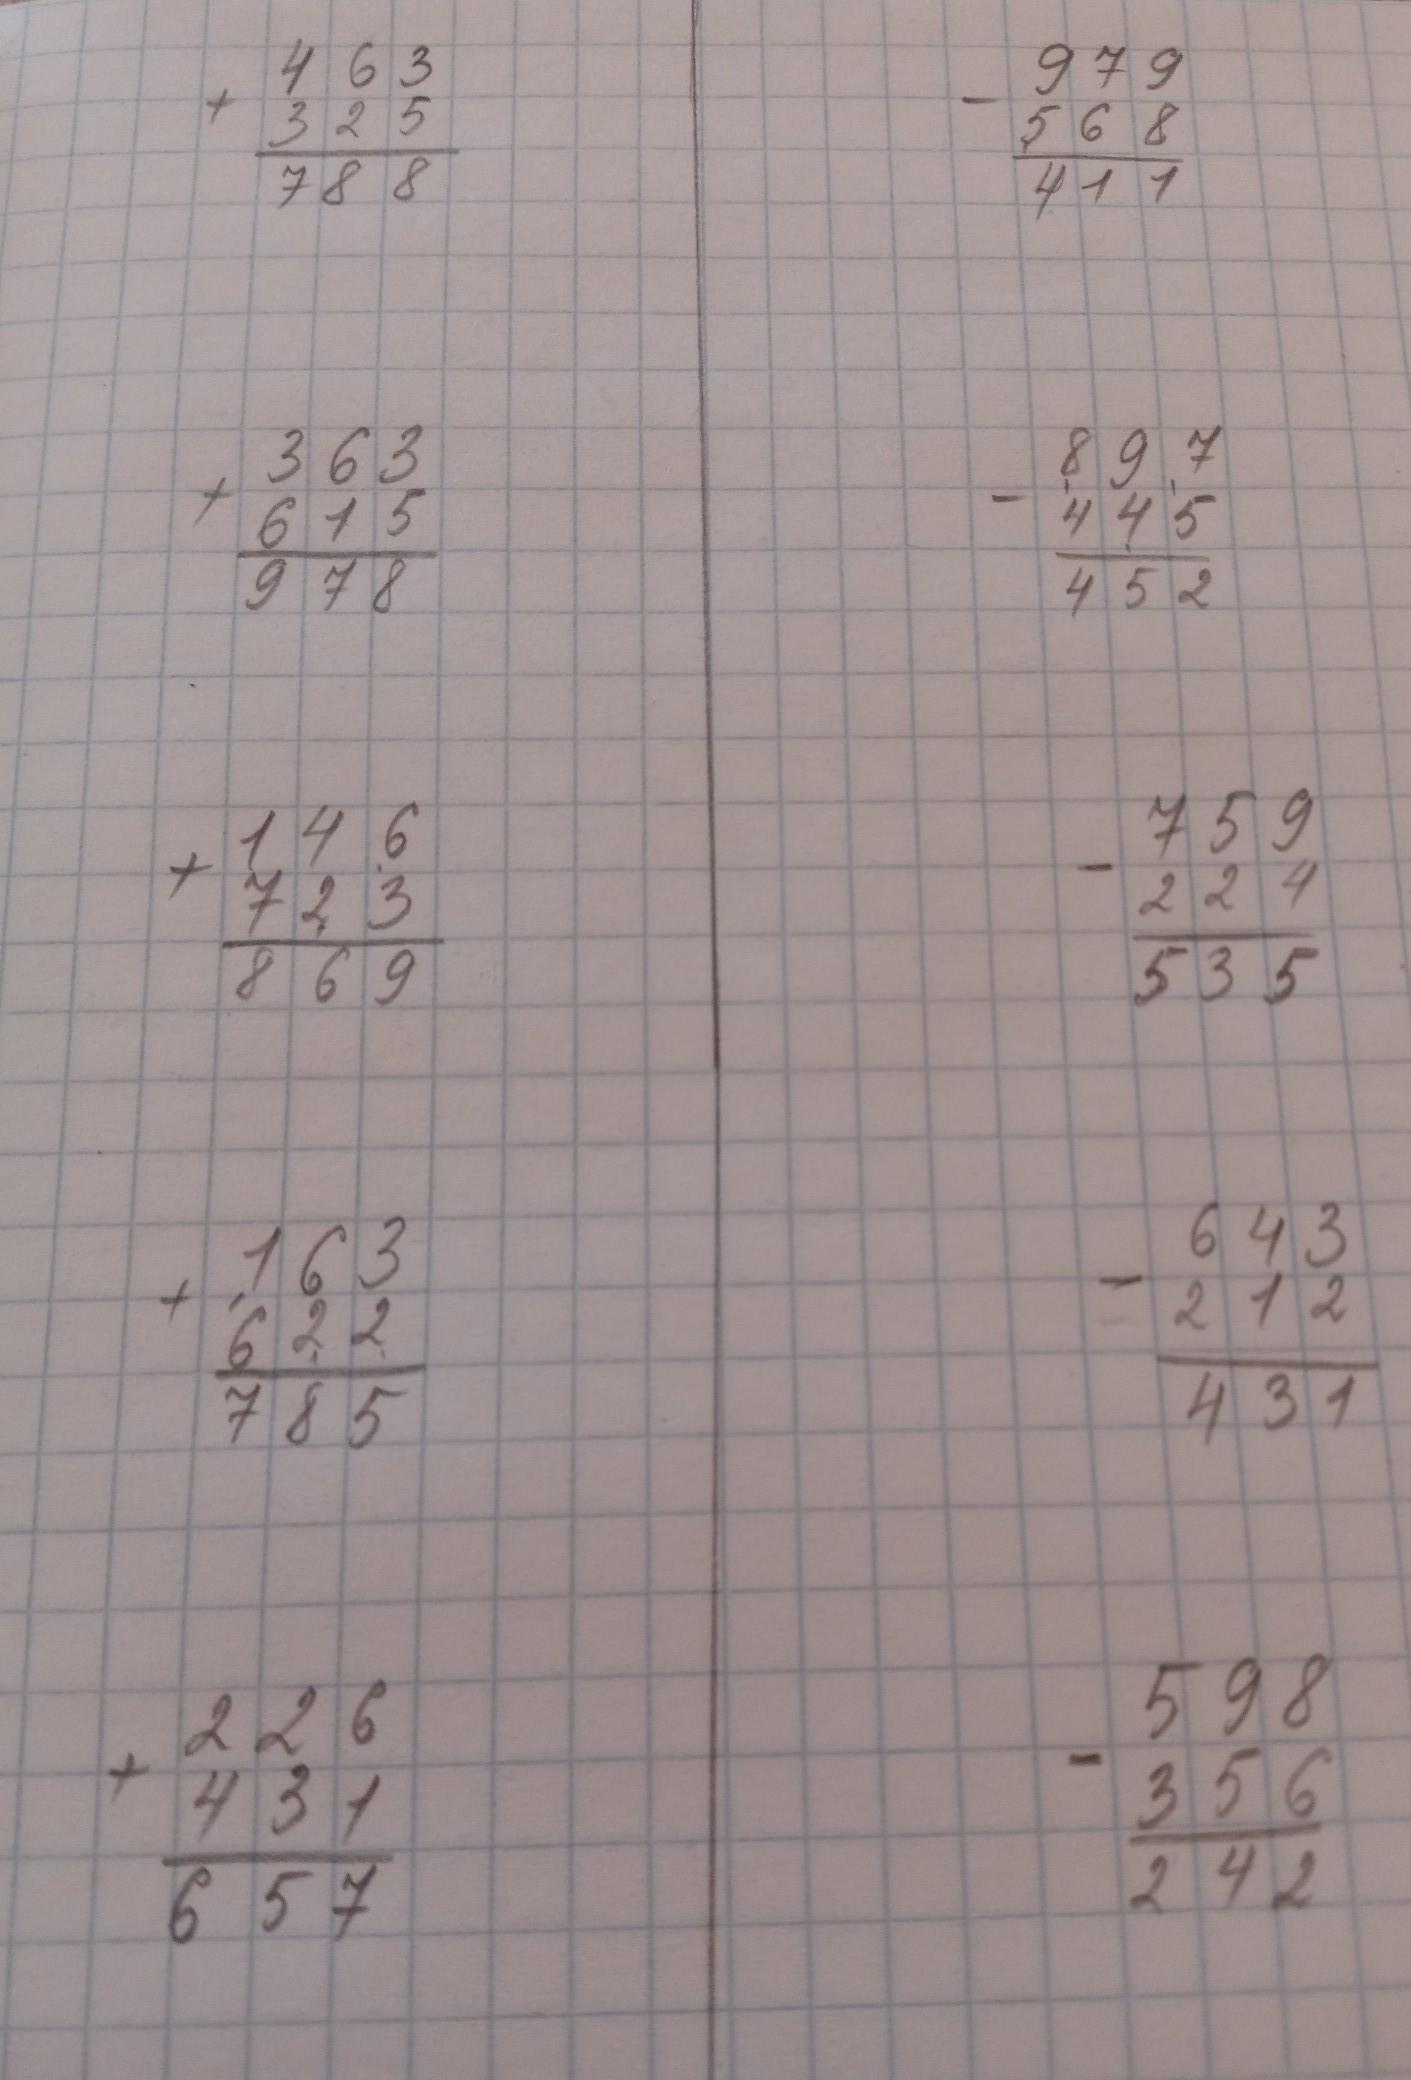 463
+
325
788
979
-
568
411
363
+
615
978
897
-
445
452
146
+
723
869
759
-
224
535
163
+
622
785
643
-
212
431
226
+
431
657
598
-
356
242